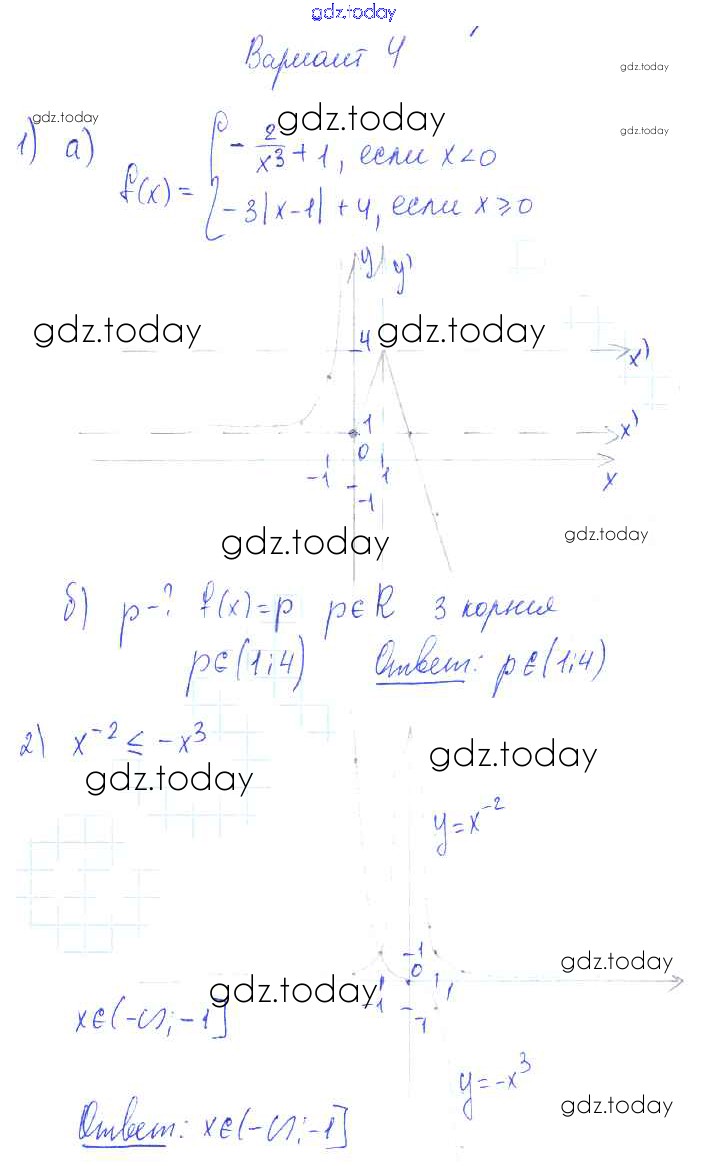 gdz.today
Вариант 4
gdz.today
gdz.today
gdz.today
gdz.today
1) а) f(x) = { - 2/x³ + 1, если x < 0
- 3|x - 1| + 4, если x ⩾ 0
y y'
gdz.today
4
gdz.today
x'
1
x'
0
-1
1
x
-1
gdz.today
gdz.today
б) p - ? f(x) = p p∈R 3 корня
p∈(1;4) Ответ: p∈(1;4)
2) x⁻² ≤ -x³
gdz.today
gdz.today
y = x⁻²
1
gdz.today
0
gdz.today
-1
1
x∈(-∞; -1]
y = -x³
gdz.today
Ответ: x∈(-∞; -1]